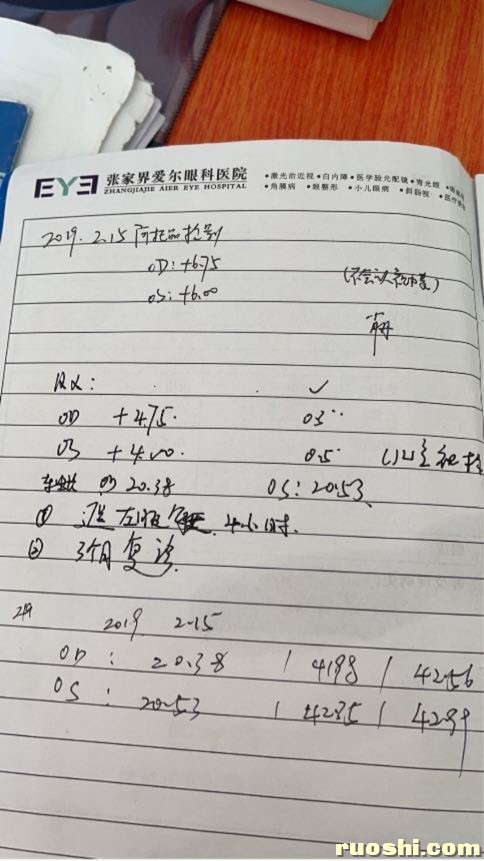 EYE 张家界爱尔眼科医院
ZHANGJIAJIE AIER EYE HOSPITAL
•激光治近视•白内障•医学验光配镜•青光眼
•角膜病 •眼整形 •小儿眼病 •斜弱视 •医疗
2019. 2.15 阿托品检影
OD: +6.75
OS: +6.00
OD +4.75
OS +4.00
0.5
OD 20.38 OS: 20.53
① 遮左眼 4小时.
② 3个月复诊
2019 2-15
OD : 20.38 / 4198 / 4256
OS : 20.53 / 4235 /
ruoshi.com